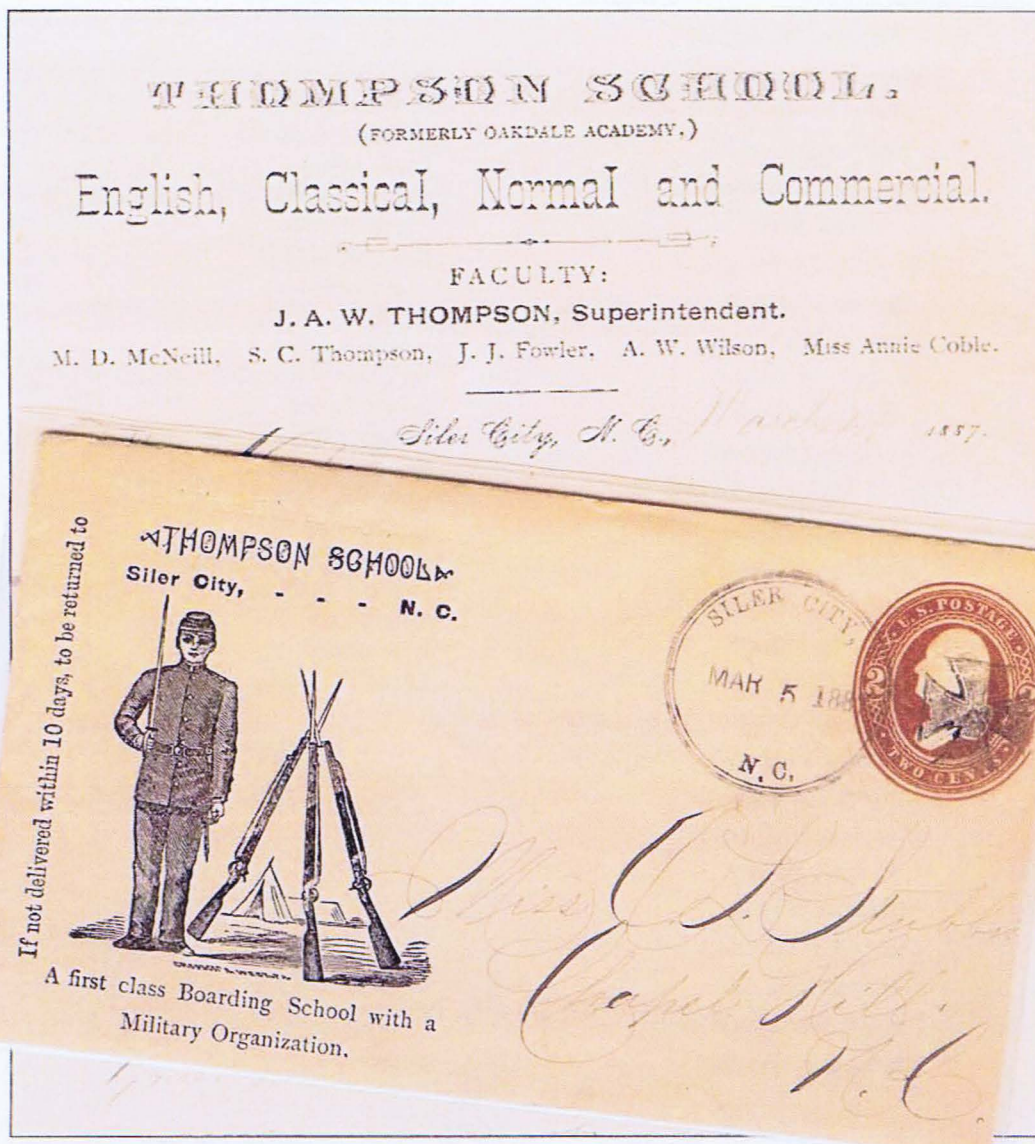 THOMPSON SCHOOL.
(FORMERLY OAKDALE ACADEMY.)
English, Classical, Normal and Commercial.
FACULTY:
J. A. W. THOMPSON, Superintendent.
M. D. McNeill, S. C. Thompson, J. J. Fowler, A. W. Wilson, Miss Annie Coble.
Siler City, N. C., March 1887.
If not delivered within 10 days, to be returned to
THOMPSON SCHOOL
Siler City, - - - N. C.
A first class Boarding School with a
Military Organization.
SILER CITY,
MAR 5 188
N. C.
U.S. POSTAGE
2
TWO CENTS
Miss
Chapel Hill
N. C.